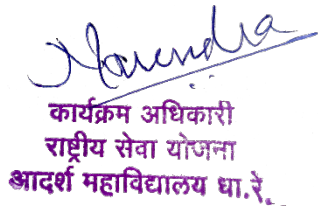 Narendra
कार्यक्रम अधिकारी
राष्ट्रीय सेवा योजना
आदर्श महाविद्यालय धा.रे.